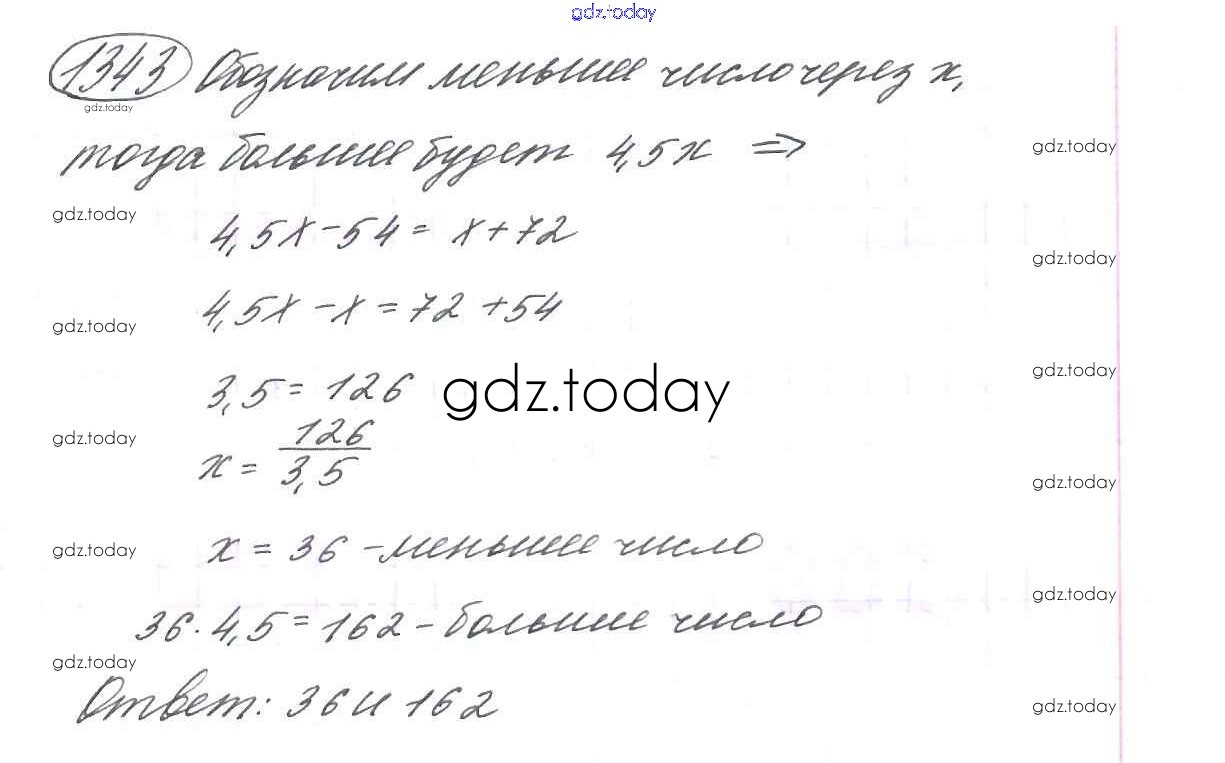 gdz.today
1343 Обозначим меньшее число через x,
gdz.today
тогда большее будет 4,5x ⇒
gdz.today
gdz.today
4,5x - 54 = x + 72
gdz.today
4,5x - x = 72 + 54
gdz.today
gdz.today
3,5 = 126
gdz.today
x = 126/3,5
gdz.today
gdz.today
x = 36 - меньшее число
gdz.today
gdz.today
36 · 4,5 = 162 - большее число
gdz.today
Ответ: 36 и 162
gdz.today